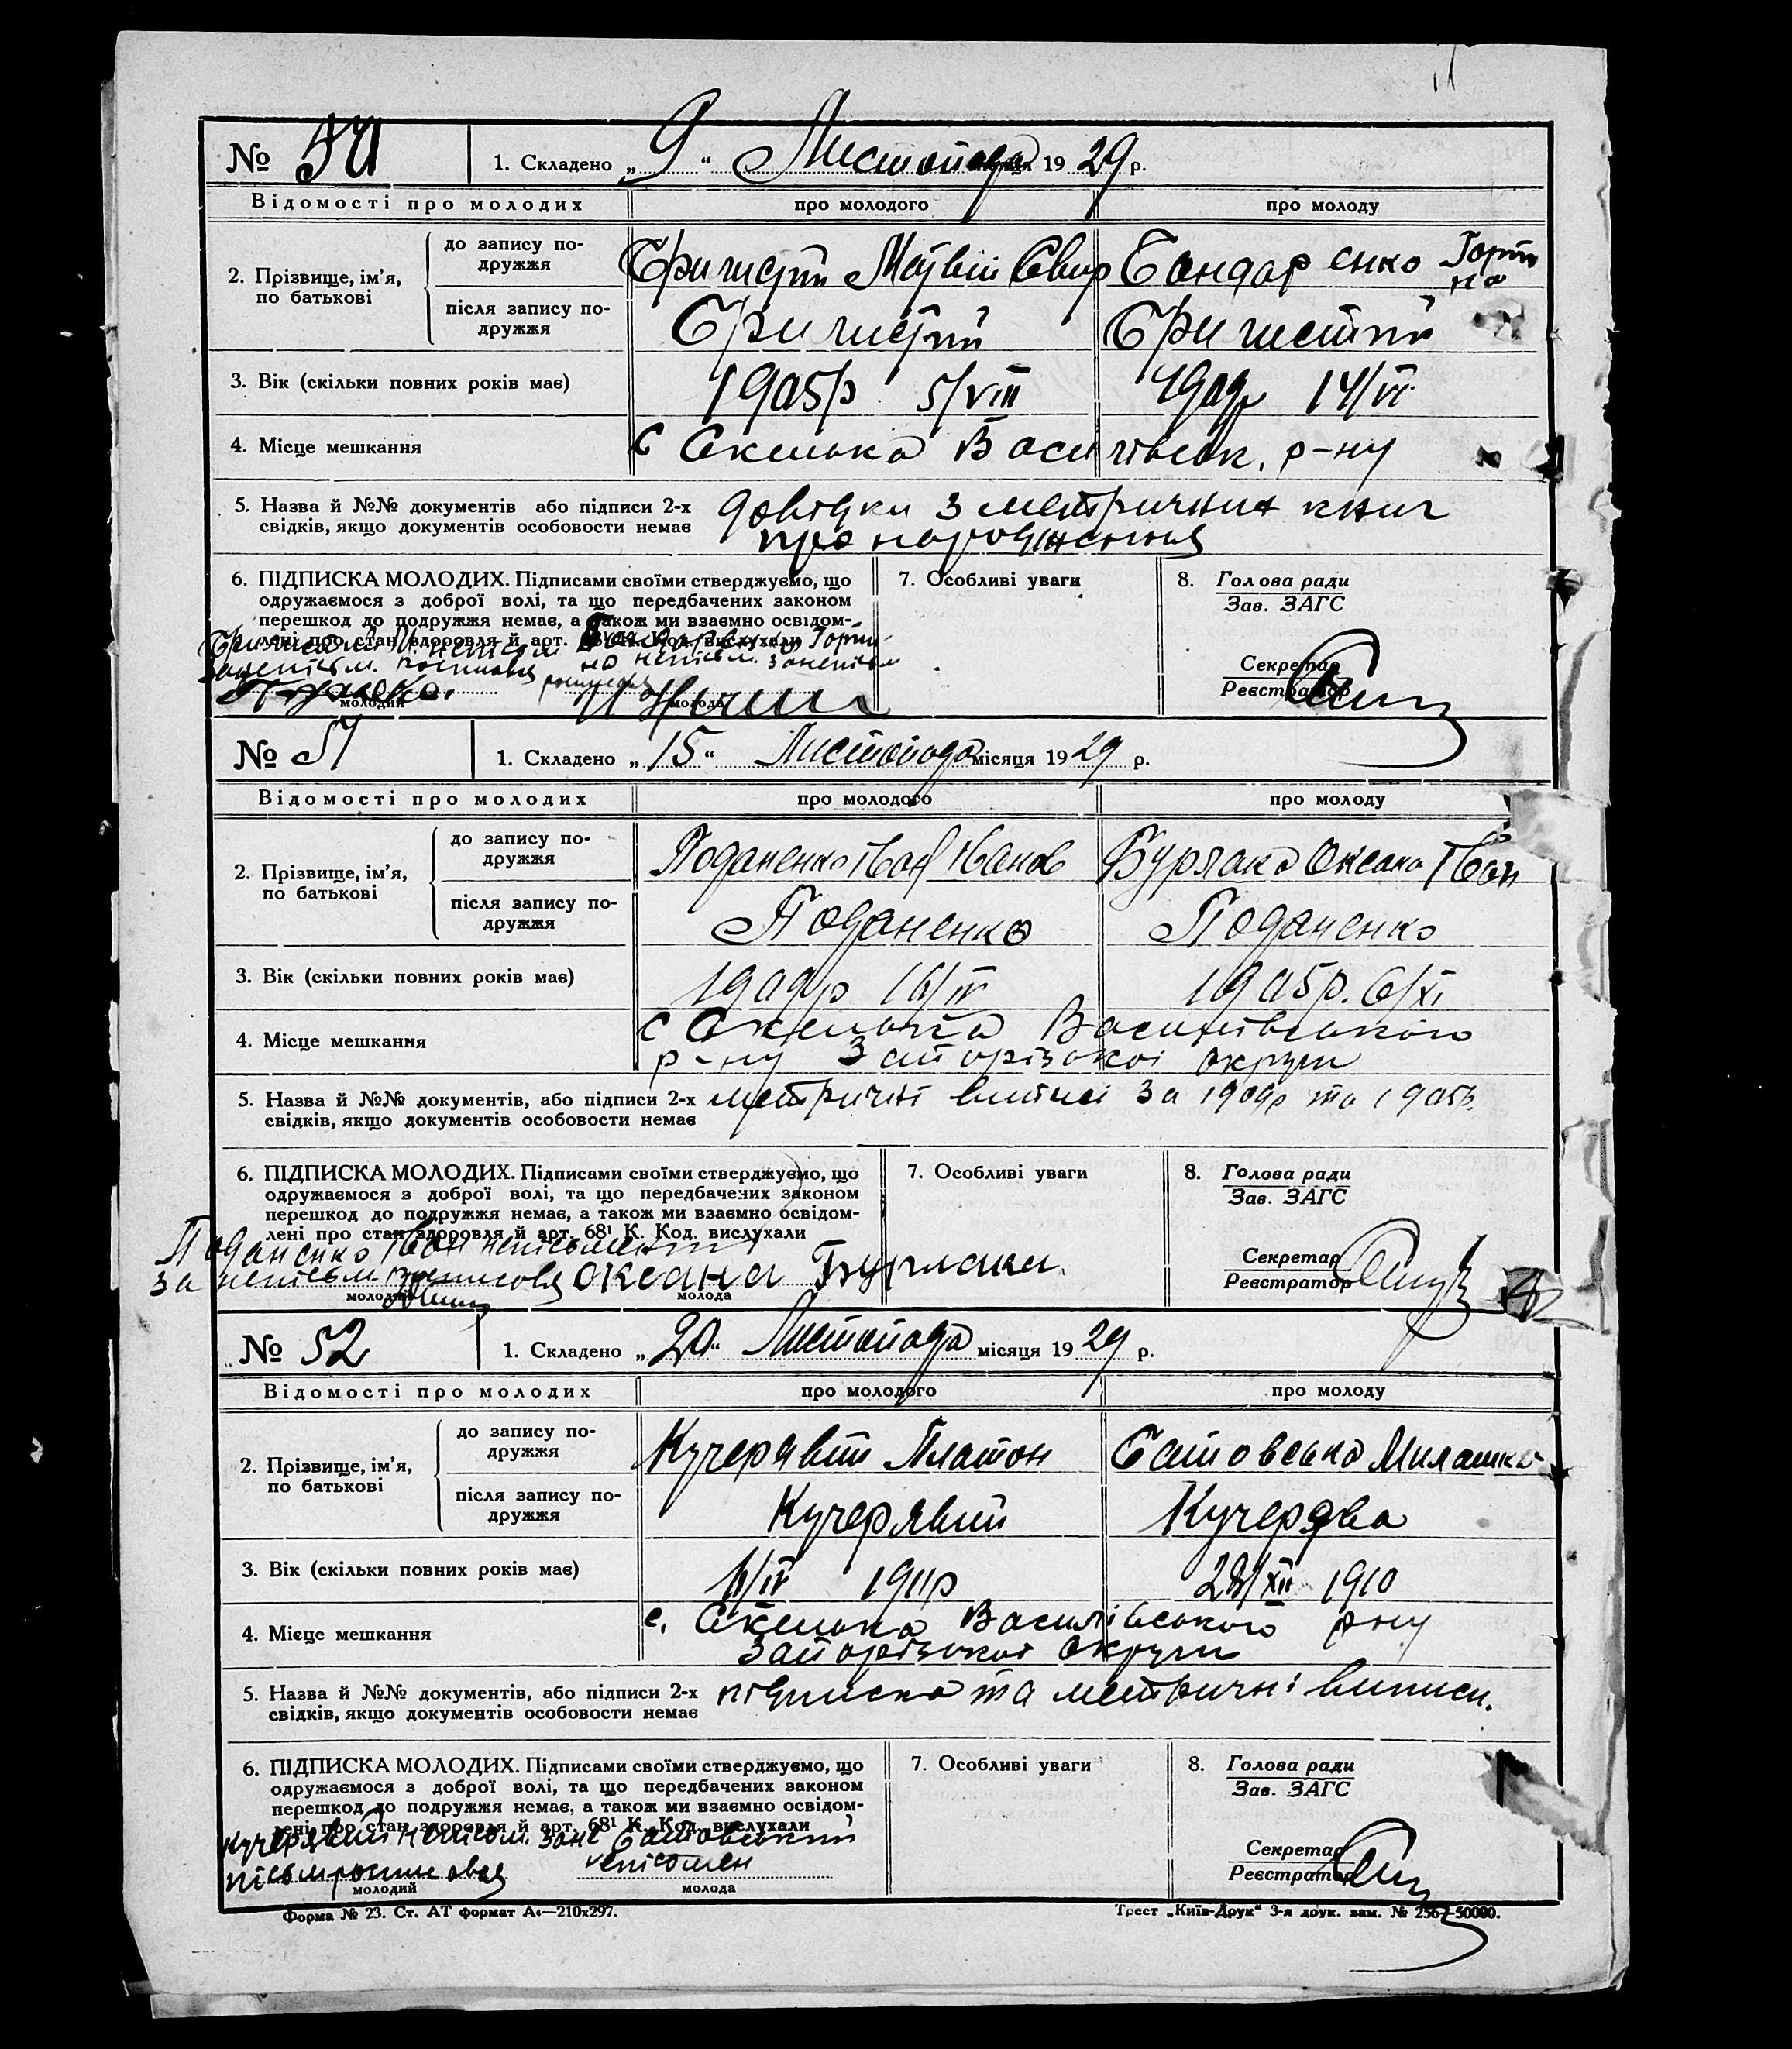 № 50 1. Складено „9“ Листопада 1929 р.
Відомості про молодих про молодого про молоду
2. Прізвище, ім’я, по батькові
до запису по-
дружжя
Матвій Свир Бондаренко Горпи
на
після запису по-
дружжя
3. Вік (скільки повних років має) 1905р 5/VIII 1909р 14/VI
4. Місце мешкання с Скелька Василівськ. р-ну
5. Назва й №№ документів або підписи 2-х довідки з метричних книг
свідків, якщо документів особовости немає про народження
6. ПІДПИСКА МОЛОДИХ. Підписами своїми стверджуємо, що 7. Особливі уваги 8. Голова ради
одружаємося з доброї волі, та що передбачених законом Зав. ЗАГС
перешкод до подружжя немає, а також ми взаємно освідом-
лені про стан здоровля й арт. К. Код. вислухали
Бондаренко Горпи-
на неписьм. за неписьм
Секретар
Реєстратор
молодий молода
№ 51 1. Складено „15“ Листопада місяця 1929 р.
Відомості про молодих про молодого про молоду
2. Прізвище, ім’я, по батькові
до запису по-
дружжя
Поданенко Іван Іванов Бурлака Оксана Іван
після запису по-
дружжя
Поданенко Поданенко
3. Вік (скільки повних років має) 1909р 16/IV 1905р. 6/XI
4. Місце мешкання с Скелька Василівського
р-ну Запорізької округи
5. Назва й №№ документів, або підписи 2-х метричні виписі за 1909р та 1905р.
свідків, якщо документів особовости немає
6. ПІДПИСКА МОЛОДИХ. Підписами своїми стверджуємо, що 7. Особливі уваги 8. Голова ради
одружаємося з доброї волі, та що передбачених законом Зав. ЗАГС
перешкод до подружжя немає, а також ми взаємно освідом-
лені про стан здоровля й арт. 68¹ К. Код. вислухали
Поданенко Іван неписьменний
за неписьм. росписовся Оксана Бурлака.
Секретар
Реєстратор
молодий молода
№ 52 1. Складено „20“ Листопада місяця 1929 р.
Відомості про молодих про молодого про молоду
2. Прізвище, ім’я, по батькові
до запису по-
дружжя
Кучерявий Платон Милашка
після запису по-
дружжя
Кучерявий Кучерява
3. Вік (скільки повних років має) 1911р 28/XII 1910
4. Місце мешкання с. Скелька Василівського р-ну
Запорізької округи
5. Назва й №№ документів, або підписи 2-х підписка та метричні виписи.
свідків, якщо документів особовости немає
6. ПІДПИСКА МОЛОДИХ. Підписами своїми стверджуємо, що 7. Особливі уваги 8. Голова ради
одружаємося з доброї волі, та що передбачених законом Зав. ЗАГС
перешкод до подружжя немає, а також ми взаємно освідом-
лені про стан здоровля й арт. 68¹ К. Код. вислухали
Кучерявий неписьм. за не
письм росписовся
Секретар
Реєстратор
молодий молода
Форма № 23. Ст. АТ формат А₄—210х297. Трест „Київ-Друк“ 3-я друк. зам. № 2567—50000.